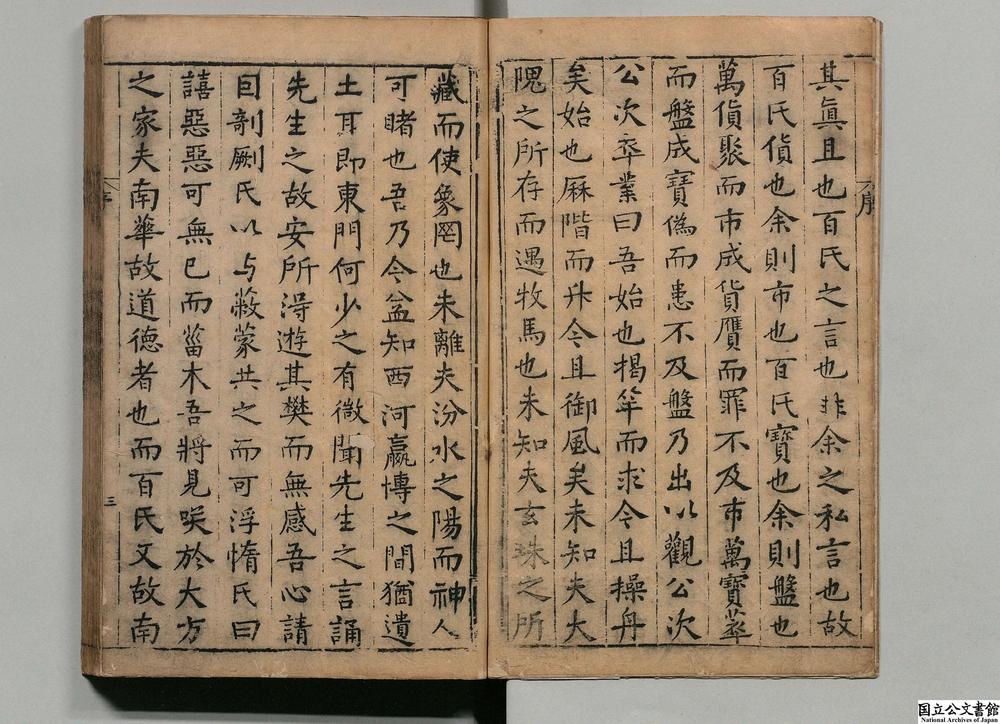 其眞且也百氏之言也非余之私言也故
百氏貨也余則市也百氏寶也余則盤也
萬貨聚而市成貨贋而罪不及市萬寶萃
而盤成寶偽而恚不及盤乃出以觀公次
公次卒業曰吾始也揭竿而求今且操舟
矣始也厤階而升今且御風矣未知夫大
隗之所存而遇牧馬也未知夫玄珠之所
序
藏而使象罔也未離夫汾水之陽而神人
可睹也吾乃今益知西河嬴博之間猶遺
土耳即東門何少之有微聞先生之言誦
先生之故安所淂遊其樊而無感吾心請
目剞劂氏以与蔽蒙共之而可浮惰氏曰
譆惡惡可無已而菑木吾將見咲於大方
之家夫南華故道德者也而百氏又故南
序
三
国立公文書館
National Archives of Japan